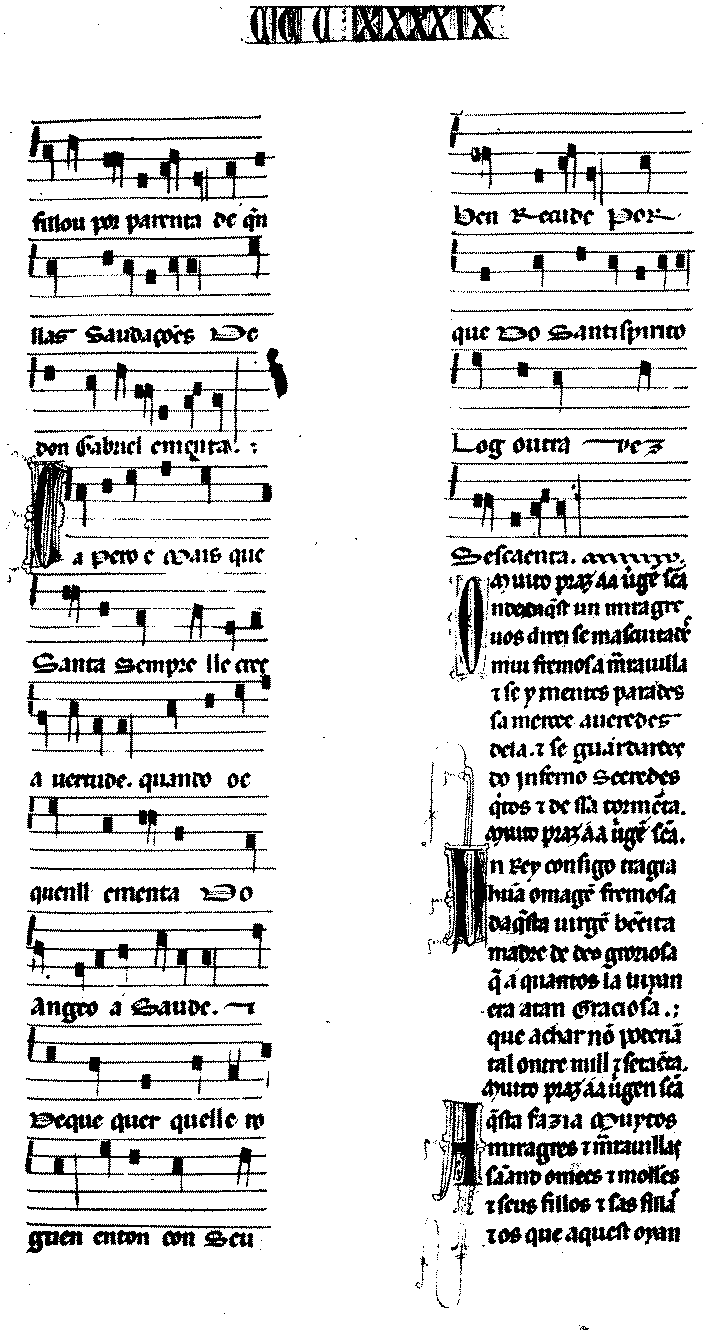 CCCXXXXIX
fillou por parenta de q̄n
llas Saudações De
don Gabriel ementa. :
a pero e Mais que
Santa Sempre lle cree
a uertude. quando oe
quenll ementa Do
Angeo a Saude. ⁊
Deque quer quelle ro
guen enton con Seu
ben Recude Por
que Do Santispirito
Log outra vez
Seseaenta.
Muito praz áá uirgē scā
un miragre
uos direi se mascuitardes
mui fremosa marauilla
⁊ se y mentes parades
sa merce aueredes
dela. ⁊ se guardardes
do inferno Seeredes
q̄tos ⁊ de ssa tormēta.
Muito praz áá uirgē scā.
n Rey consigo tragia
hūa omagē fremosa
daq̄sta uirgē bēeita
madre de deo groriosa
q̄ a quantos la uyian
era atan Graciosa . ;
que achar nō poteriā
tal ontre mill ⁊ seraēta.
Muito praz áá uirgen scā
q̄sta fazia Muytos
miragres ⁊ marauillas
sāando omees ⁊ molleres
⁊ seus fillos ⁊ sas fillas
⁊ os que aquest oyan